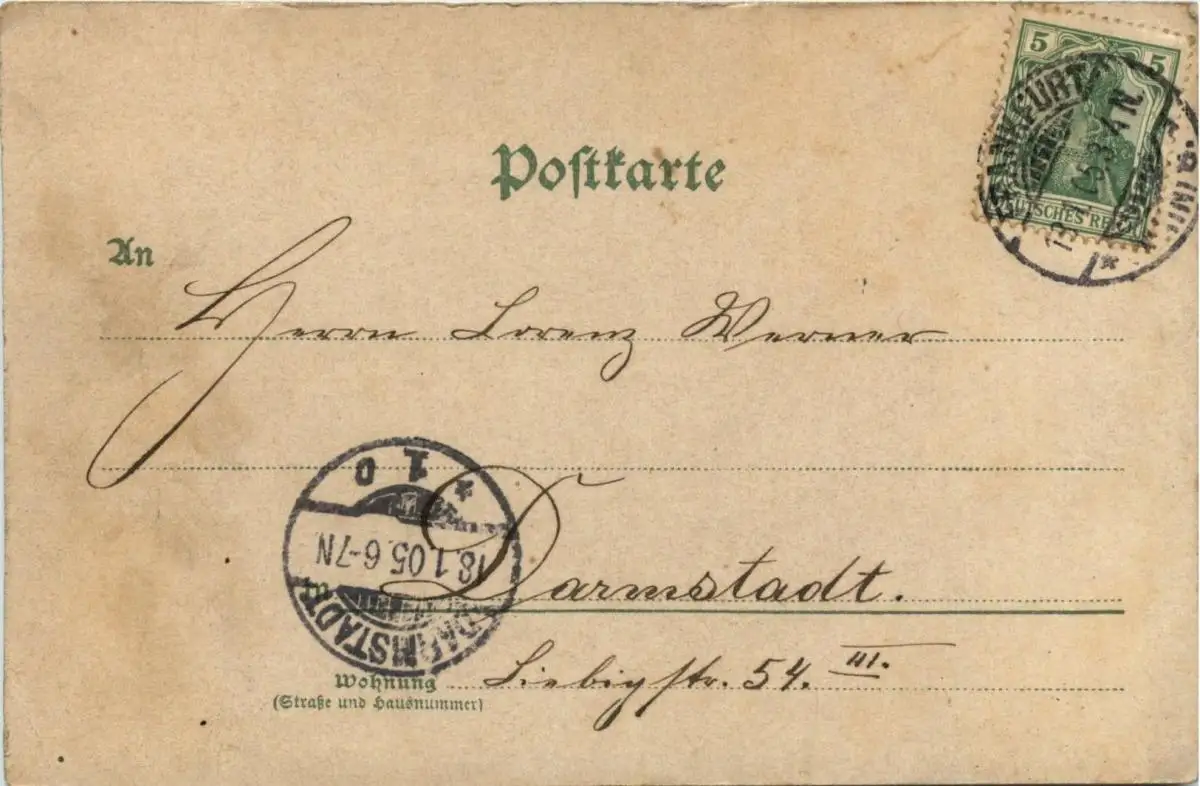 5 5
FRANKFURT
DEUTSCHES REICH
Postkarte
An
Herrn Lorenz Werner
* 1 D
18.1.05.6-7N
DARMSTADT
Darmstadt.
Wohnung Liebigstr. 54. III.
(Straße und Hausnummer)